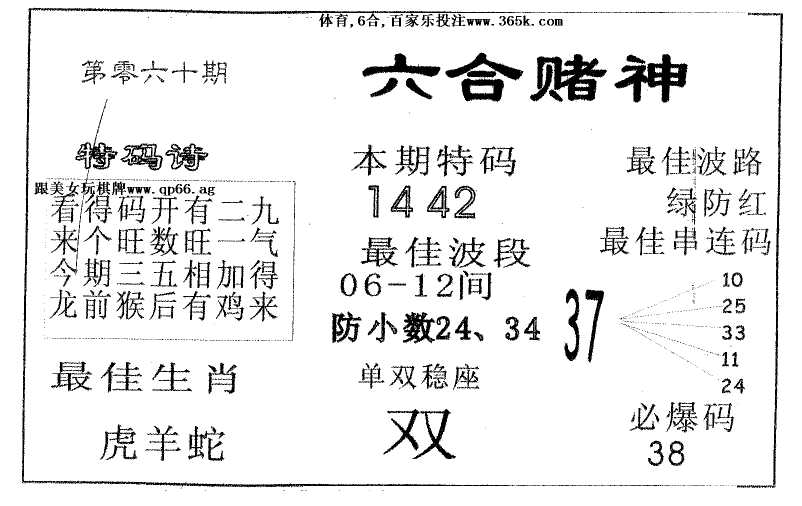 体育,6合,百家乐投注www.365k.com
第零六十期
六合赌神
特码诗
跟美女玩棋牌www.qp66.ag
看得码开有二九
来个旺数旺一气
今期三五相加得
龙前猴后有鸡来
最佳生肖
虎羊蛇
本期特码
14 42
最佳波段
06-12间
防小数24、34
单双稳座
双
最佳波路
绿防红
最佳串连码
37
10
25
33
11
24
必爆码
38